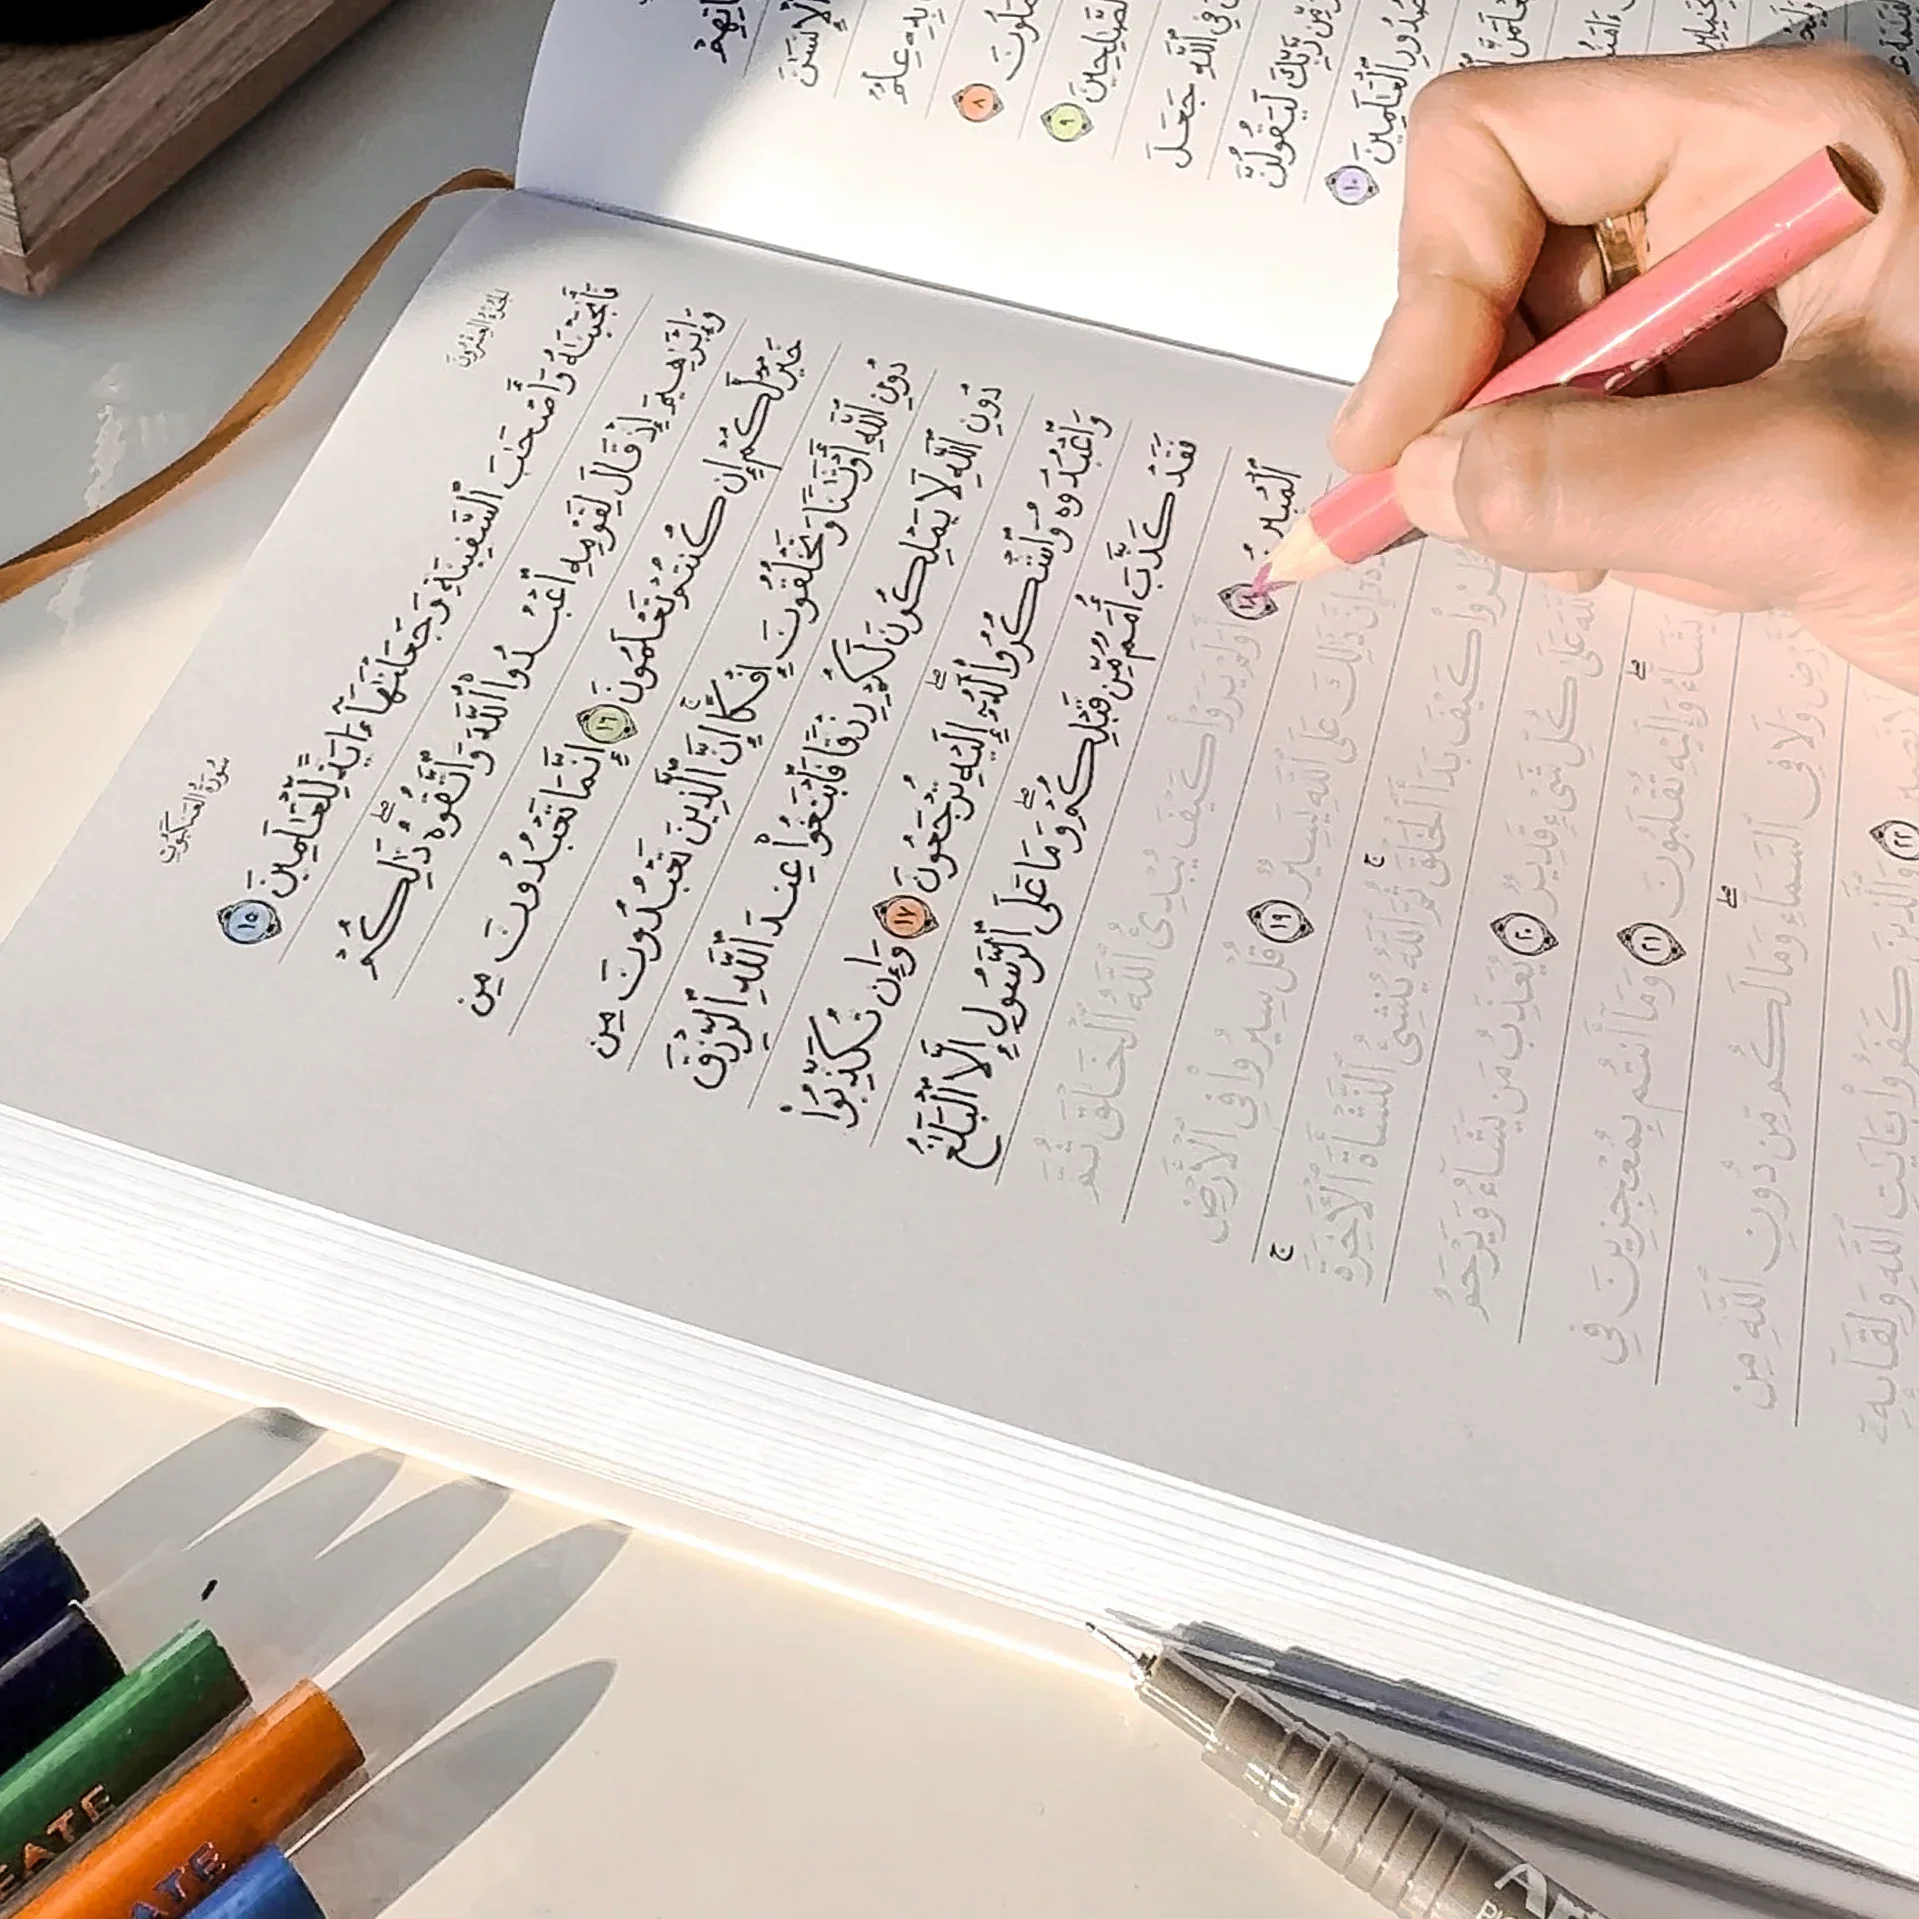 سُورَةُ العَنكَبُوتِ
الجُزْءُ العِشْرُونَ
فَأَنجَيْنَٰهُ وَأَصْحَٰبَ ٱلسَّفِينَةِ وَجَعَلْنَٰهَآ ءَايَةً لِّلْعَٰلَمِينَ ١٥
وَإِبْرَٰهِيمَ إِذْ قَالَ لِقَوْمِهِ ٱعْبُدُوا۟ ٱللَّهَ وَٱتَّقُوهُ ۖ ذَٰلِكُمْ
خَيْرٌ لَّكُمْ إِن كُنتُمْ تَعْلَمُونَ ١٦ إِنَّمَا تَعْبُدُونَ مِن
دُونِ ٱللَّهِ أَوْثَٰنًا وَتَخْلُقُونَ إِفْكًا ۚ إِنَّ ٱلَّذِينَ تَعْبُدُونَ مِن
دُونِ ٱللَّهِ لَا يَمْلِكُونَ لَكُمْ رِزْقًا فَٱبْتَغُوا۟ عِندَ ٱللَّهِ ٱلرِّزْقَ
وَٱعْبُدُوهُ وَٱشْكُرُوا۟ لَهُۥٓ ۖ إِلَيْهِ تُرْجَعُونَ ١٧ وَإِن تُكَذِّبُوا۟
فَقَدْ كَذَّبَ أُمَمٌ مِّن قَبْلِكُمْ ۖ وَمَا عَلَى ٱلرَّسُولِ إِلَّا ٱلْبَلَٰغُ
ٱلْمُبِينُ ١٨ أَوَلَمْ يَرَوْا۟ كَيْفَ يُبْدِئُ ٱللَّهُ ٱلْخَلْقَ ثُمَّ
إِنَّ ذَٰلِكَ عَلَى ٱللَّهِ يَسِيرٌ ١٩ قُلْ سِيرُوا۟ فِى ٱلْأَرْضِ
كَيْفَ بَدَأَ ٱلْخَلْقَ ۚ ثُمَّ ٱللَّهُ يُنشِئُ ٱلنَّشْأَةَ ٱلْأَخِرَةَ ۚ
عَلَىٰ كُلِّ شَىْءٍ قَدِيرٌ ٢٠ يُعَذِّبُ مَن يَشَآءُ وَيَرْحَمُ
يَشَآءُ ۖ وَإِلَيْهِ تُقْلَبُونَ ٢١ وَمَآ أَنتُم بِمُعْجِزِينَ فِى
وَلَا فِى ٱلسَّمَآءِ ۖ وَمَا لَكُم مِّن دُونِ ٱللَّهِ مِن
٢٢ وَٱلَّذِينَ كَفَرُوا۟ بِـَٔايَٰتِ ٱللَّهِ وَلِقَآئِهِۦٓ
ٱلْإِنسَٰنَ
بِهِۦ عِلْمٌ
٨
ٱلصَّٰلِحِينَ ٩
فِى ٱللَّهِ جَعَلَ
مِّن رَّبِّكَ لَيَقُولُنَّ
صُدُورِ ٱلْعَٰلَمِينَ ١٠
EATE
ATE